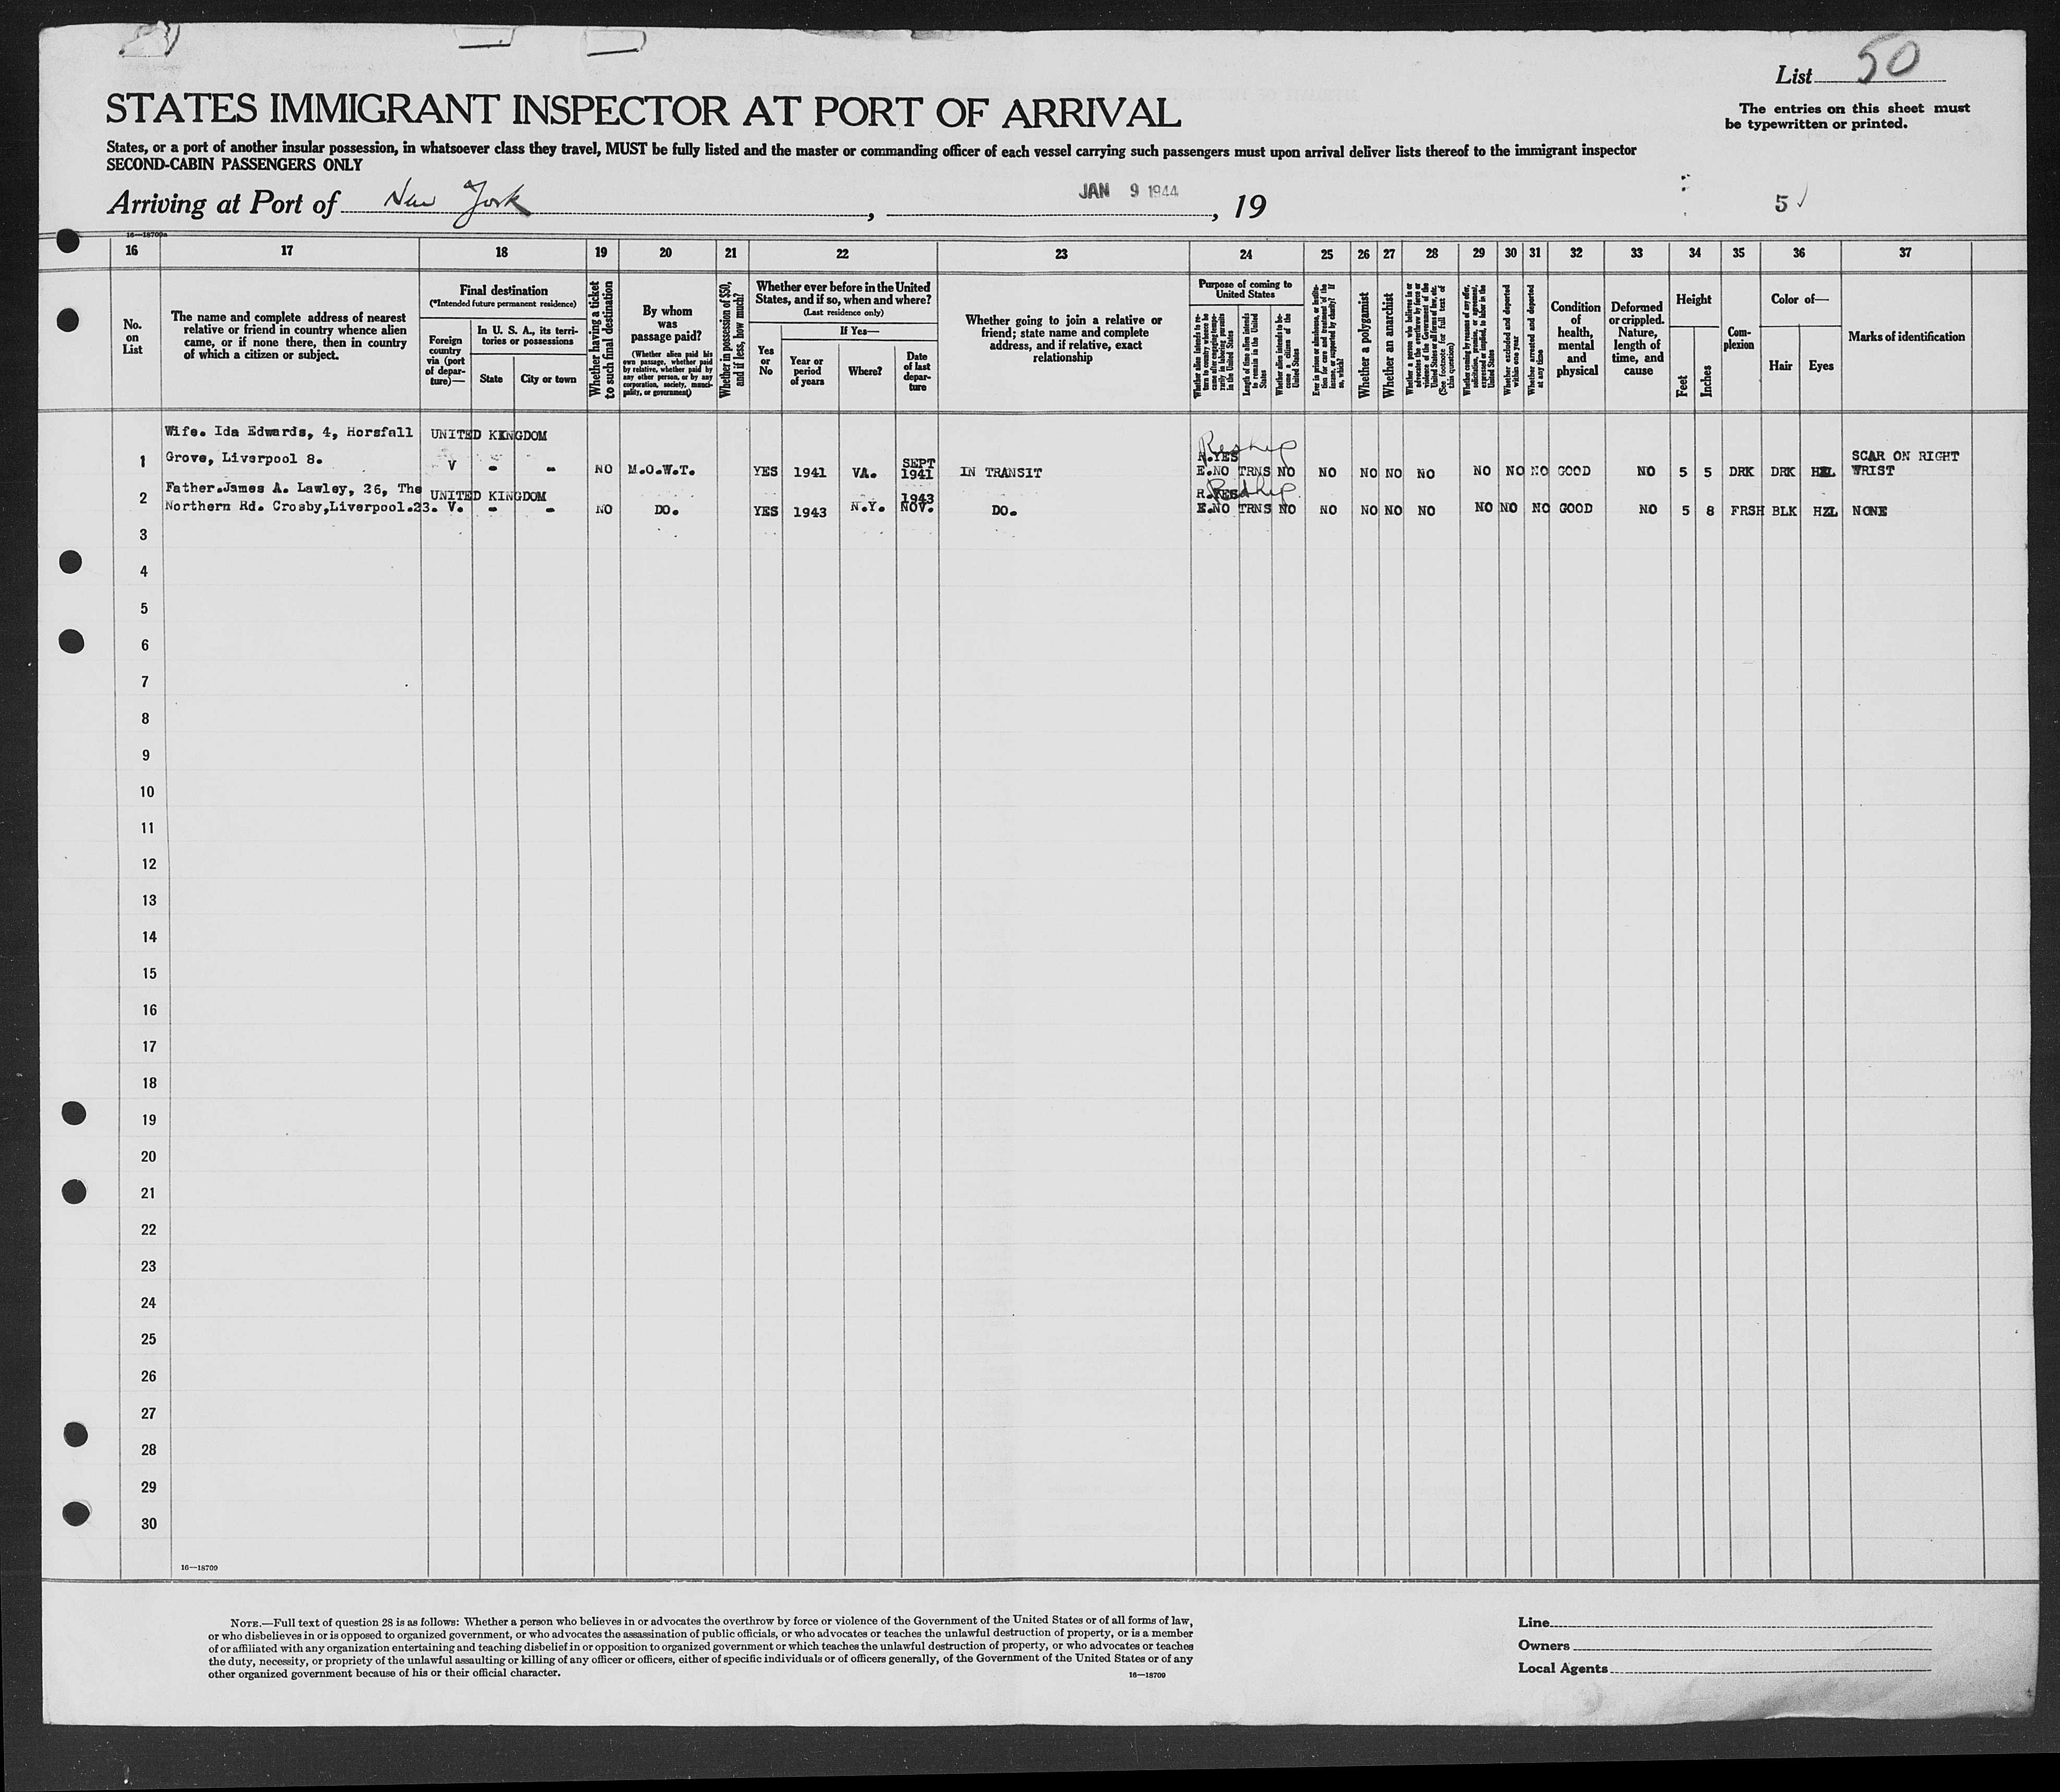 List 50
The entries on this sheet must
be typewritten or printed.
STATES IMMIGRANT INSPECTOR AT PORT OF ARRIVAL
States, or a port of another insular possession, in whatsoever class they travel, MUST be fully listed and the master or commanding officer of each vessel carrying such passengers must upon arrival deliver lists thereof to the immigrant inspector
SECOND-CABIN PASSENGERS ONLY
Arriving at Port of New York, JAN 9 1944, 19
5
16—18709a
16 17 18 19 20 21 22 23 24 25 26 27 28 29 30 31 32 33 34 35 36 37
No. on List
The name and complete address of nearest relative or friend in country whence alien came, or if none there, then in country of which a citizen or subject.
Final destination
(*Intended future permanent residence)
Foreign country via (port of departure)—
In U. S. A., its territories or possessions
State
City or town
Whether having a ticket to such final destination
By whom was passage paid?
(Whether alien paid his own passage, whether paid by relative, whether paid by any other person, or by any corporation, society, municipality, or government)
Whether in possession of $50, and if less, how much?
Whether ever before in the United States, and if so, when and where?
(Last residence only)
Yes or No
If Yes—
Year or period of years
Where?
Date of last departure
Whether going to join a relative or friend; state name and complete address, and if relative, exact relationship
Purpose of coming to United States
Whether alien intends to return to country whence he came after engaging temporarily in laboring pursuits in the United States
Length of time alien intends to remain in the United States
Whether alien intends to become a citizen of the United States
Ever in prison or almshouse, or institution for care and treatment of the insane, or supported by charity? If so, which?
Whether a polygamist
Whether an anarchist
Whether a person who believes in or advocates the overthrow by force or violence of the Government of the United States or all forms of law, etc. (See footnote for full text of this question)
Whether coming by reasons of any offer, solicitation, promise, or agreement, expressed or implied, to labor in the United States
Whether excluded and deported within one year
Whether arrested and deported at any time
Condition of health, mental and physical
Deformed or crippled. Nature, length of time, and cause
Height
Feet
Inches
Complexion
Color of—
Hair
Eyes
Marks of identification
Wife. Ida Edwards, 4, Horsfall UNITED KINGDOM
1 Grove, Liverpool 8. V - - NO M.O.W.T. YES 1941 VA. SEPT 1941 IN TRANSIT R.YES E.NO TRNS NO NO NO NO NO NO NO NO GOOD NO 5 5 DRK DRK HZL SCAR ON RIGHT WRIST
2 Father.James A. Lawley, 26, The UNITED KINGDOM
Northern Rd. Crosby,Liverpool.23. V. - - NO DO. YES 1943 N.Y. 1943 NOV. DO. R.YES E.NO TRNS NO NO NO NO NO NO NO NO GOOD NO 5 8 FRSH BLK HZL NONE
3
4
5
6
7
8
9
10
11
12
13
14
15
16
17
18
19
20
21
22
23
24
25
26
27
28
29
30
16—18709
NOTE.—Full text of question 28 is as follows: Whether a person who believes in or advocates the overthrow by force or violence of the Government of the United States or of all forms of law,
or who disbelieves in or is opposed to organized government, or who advocates the assassination of public officials, or who advocates or teaches the unlawful destruction of property, or is a member
of or affiliated with any organization entertaining and teaching disbelief in or opposition to organized government or which teaches the unlawful destruction of property, or who advocates or teaches
the duty, necessity, or propriety of the unlawful assaulting or killing of any officer or officers, either of specific individuals or of officers generally, of the Government of the United States or of any
other organized government because of his or their official character.
16—18709
Line
Owners
Local Agents